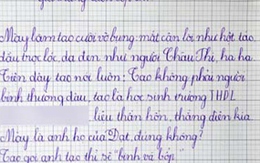 Mày làm tao cười vỡ bụng, mặt căn lợi như hột táo
đầu trọc lóc, da đen như người Châu Phi, ha ha
Tiện đây tao nói luôn: Tao không phải người
bình thường đâu, tao là học sinh trường THPL
liều thân hồn, thằng điên kia
Mày là anh họ của Đạt, đúng không?
Tao gọi anh tao thì sẽ "bình và bốp"